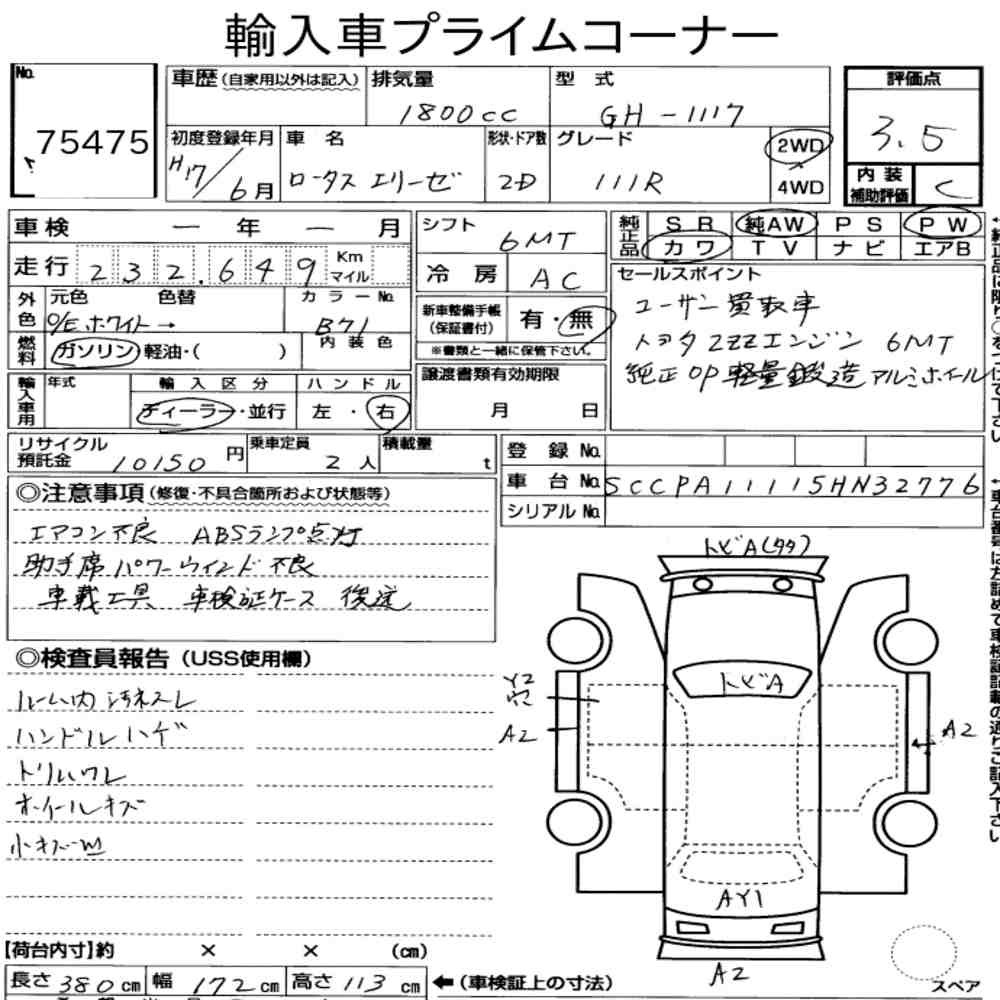 輸入車プライムコーナー
No. 75475
車歴(自家用以外は記入) 排気量 1800cc 型式 GH-1117
初度登録年月 H17/6月 車名 ロータス エリーゼ 形状・ドア数 2D グレード 111R 2WD 4WD
評価点 3.5
内装補助評価 C
車検 ― 年 ― 月
走行 232,649 Km マイル
外色 元色 O/E.ホワイト→ 色替 カラーNo. B71
燃料 ガソリン 軽油・( ) 内装色
輸入車用 年式 輸入区分 ディーラー・並行 ハンドル 左・右
シフト 6MT
冷房 AC
新車整備手帳(保証書付) 有・無
※書類と一緒に保管下さい。
譲渡書類有効期限 月 日
純正品 SR 純AW PS PW
カワ TV ナビ エアB
セールスポイント
ユーザー買取車
トヨタ2ZZエンジン 6MT
純正OP 軽量鍛造アルミホイール
リサイクル預託金 10150円 乗車定員 2人 積載量 t
登録No.
車台No. SCCPA11115HN32776
シリアルNo.
◎注意事項(修復・不具合箇所および状態等)
エアコン不良 ABSランプ点灯
助手席パワーウィンド不良
車載工具 車検証ケース 後送
◎検査員報告(USS使用欄)
ルーム内汚れスレ
ハンドルハゲ
トリムワレ
ホイールキズ
小キズ凹
トビA(タタ)
トビA
Y2
穴
A2
A2
AY1
A2
スペア
【荷台内寸】約 × × (cm)
長さ 380cm 幅 172cm 高さ 113cm ←(車検証上の寸法)